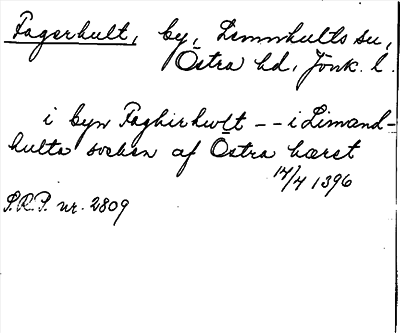 Fagerhult, by, Lemnhults sn,
Östra hd, Jönk. l.
i byn Faghirhwlt -- i Limand-
hulta sochen af Östra hæret
14/4 1396
S.R.P. nr. 2809